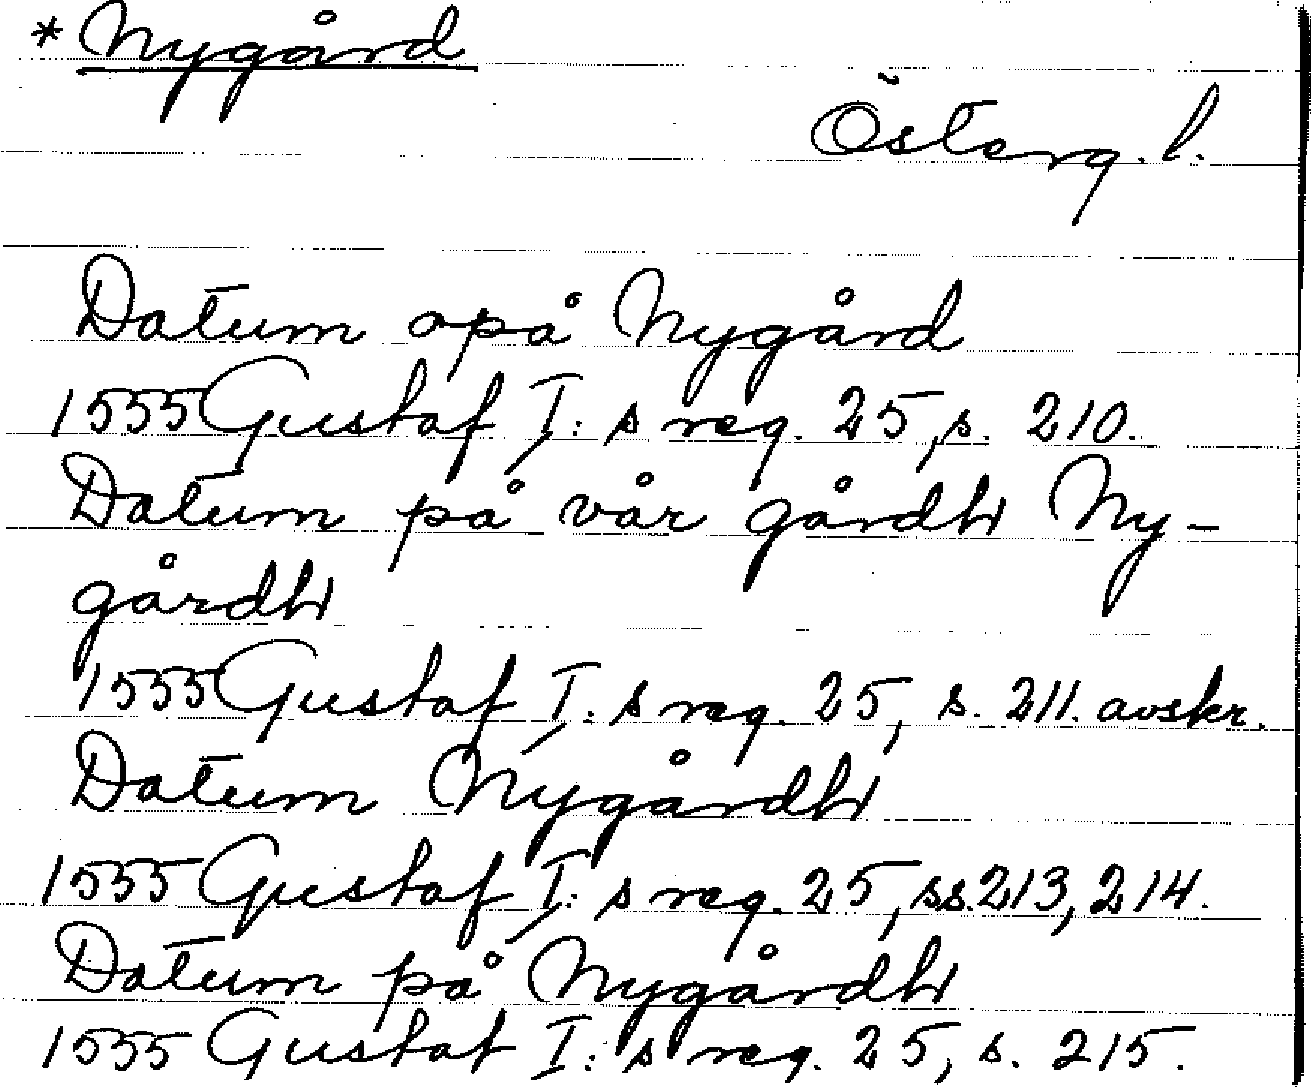 * Nygård
Österg. l.
Datum opå Nygård
1555 Gustaf I:s reg. 25, s. 210.
Datum på vår gårdh Ny-
gårdh
1555 Gustaf I:s reg. 25, s. 211. avskr.
Datum Nygårdh
1555 Gustaf I:s reg. 25, ss. 213, 214.
Datum på Nygårdh
1555 Gustaf I:s reg. 25, s. 215.